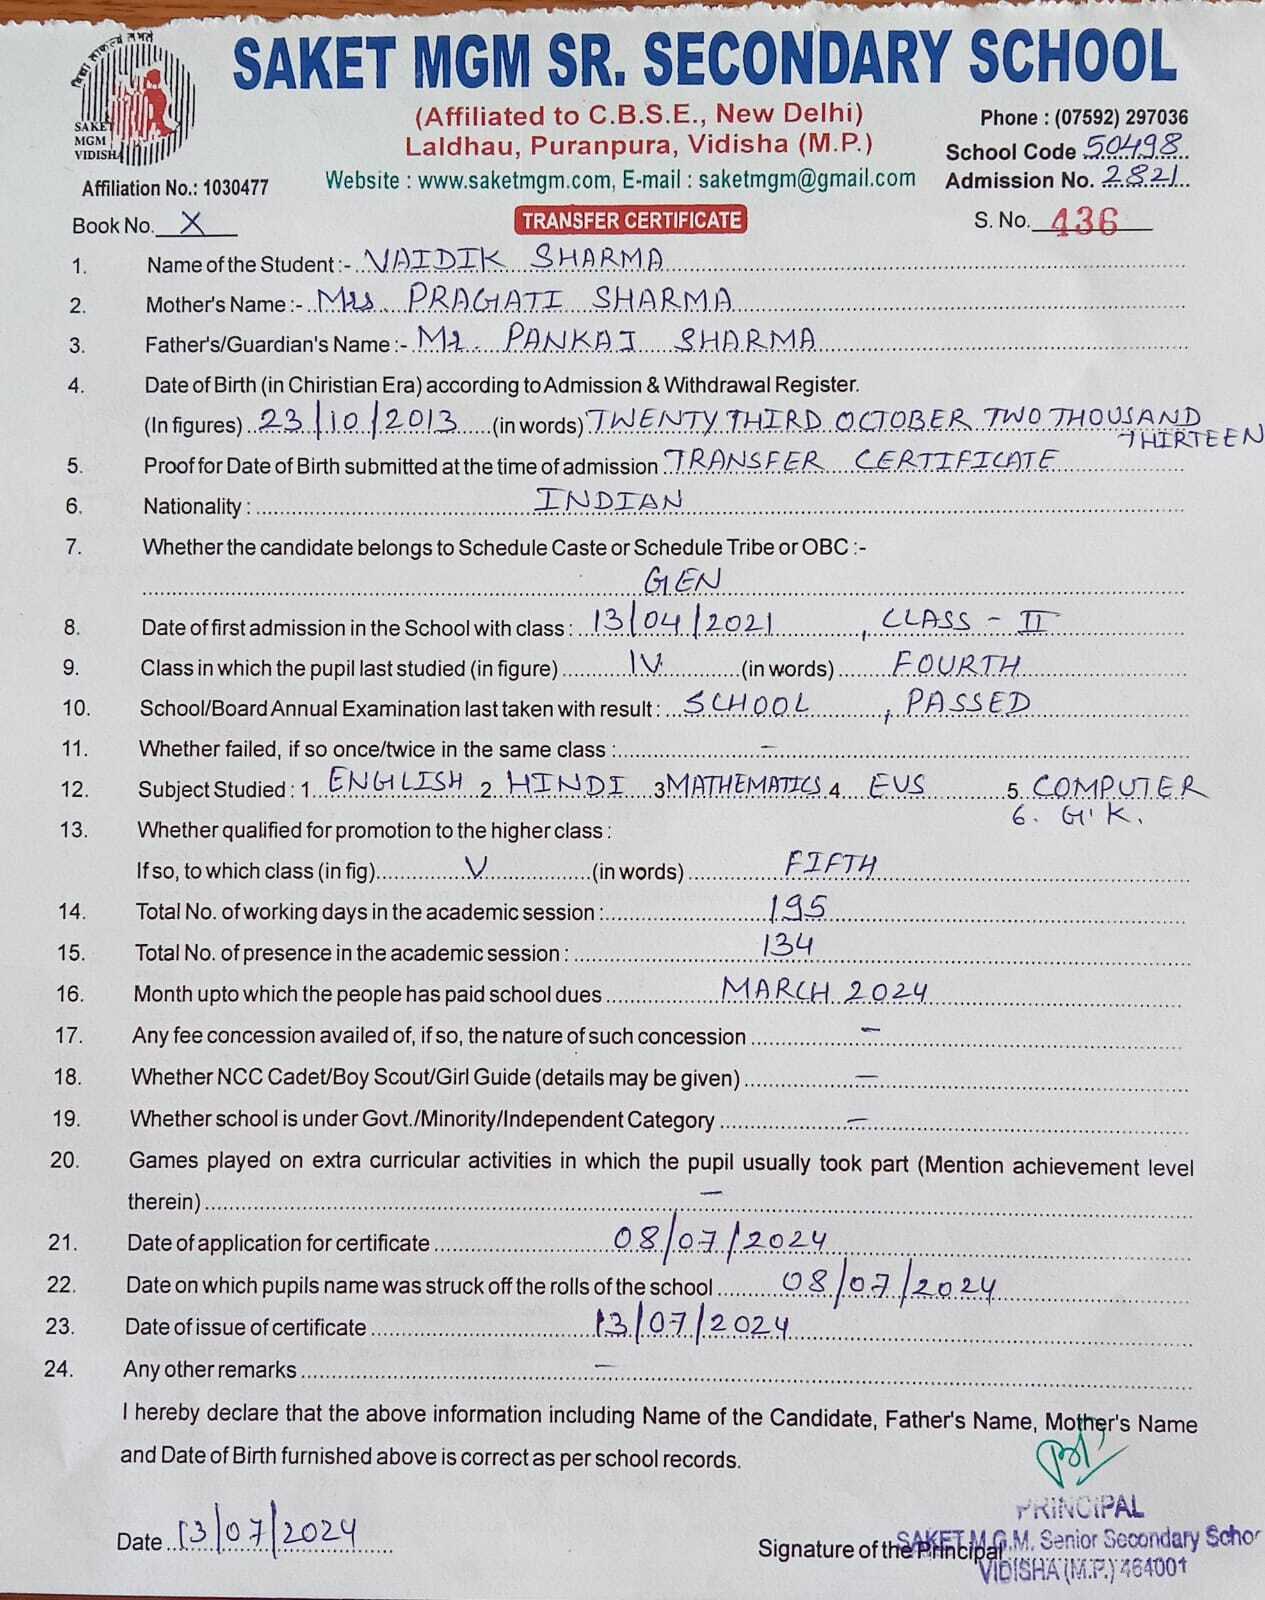 विद्या ताकत्य लभते
SAKET
MGM
VIDISHA
SAKET MGM SR. SECONDARY SCHOOL
(Affiliated to C.B.S.E., New Delhi)
Laldhau, Puranpura, Vidisha (M.P.)
Website : www.saketmgm.com, E-mail : saketmgm@gmail.com
Phone : (07592) 297036
School Code 50498
Admission No. 2821
Affiliation No.: 1030477
Book No. X
TRANSFER CERTIFICATE
S. No. 436
1. Name of the Student :- VAIDIK SHARMA
2. Mother's Name :- Mrs PRAGATI SHARMA
3. Father's/Guardian's Name :- Mr. PANKAJ SHARMA
4. Date of Birth (in Chiristian Era) according to Admission & Withdrawal Register.
(In figures) 23/10/2013 (in words) TWENTY THIRD OCTOBER TWO THOUSAND
THIRTEEN
5. Proof for Date of Birth submitted at the time of admission TRANSFER CERTIFICATE
6. Nationality : INDIAN
7. Whether the candidate belongs to Schedule Caste or Schedule Tribe or OBC :-
GEN
8. Date of first admission in the School with class : 13/04/2021, CLASS - II
9. Class in which the pupil last studied (in figure) IV (in words) FOURTH
10. School/Board Annual Examination last taken with result : SCHOOL, PASSED
11. Whether failed, if so once/twice in the same class : -
12. Subject Studied : 1 ENGLISH 2 HINDI 3 MATHEMATICS 4 EVS 5. COMPUTER
6. G.K.
13. Whether qualified for promotion to the higher class :
If so, to which class (in fig) V (in words) FIFTH
14. Total No. of working days in the academic session : 195
15. Total No. of presence in the academic session : 134
16. Month upto which the people has paid school dues MARCH 2024
17. Any fee concession availed of, if so, the nature of such concession -
18. Whether NCC Cadet/Boy Scout/Girl Guide (details may be given) -
19. Whether school is under Govt./Minority/Independent Category -
20. Games played on extra curricular activities in which the pupil usually took part (Mention achievement level
therein) -
21. Date of application for certificate 08/07/2024
22. Date on which pupils name was struck off the rolls of the school 08/07/2024
23. Date of issue of certificate 13/07/2024
24. Any other remarks -
I hereby declare that the above information including Name of the Candidate, Father's Name, Mother's Name
and Date of Birth furnished above is correct as per school records.
Date 13/07/2024
Signature of the Principal
PRINCIPAL
SAKET M.G.M. Senior Secondary Schoo
VIDISHA (M.P.) 464001